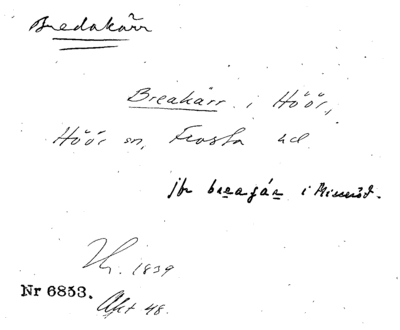 Bredakärr
Breakärr i Höör,
Höör sn, Frosta hd
jfr breagár i
1839
Nr 6853.
Akt 48.